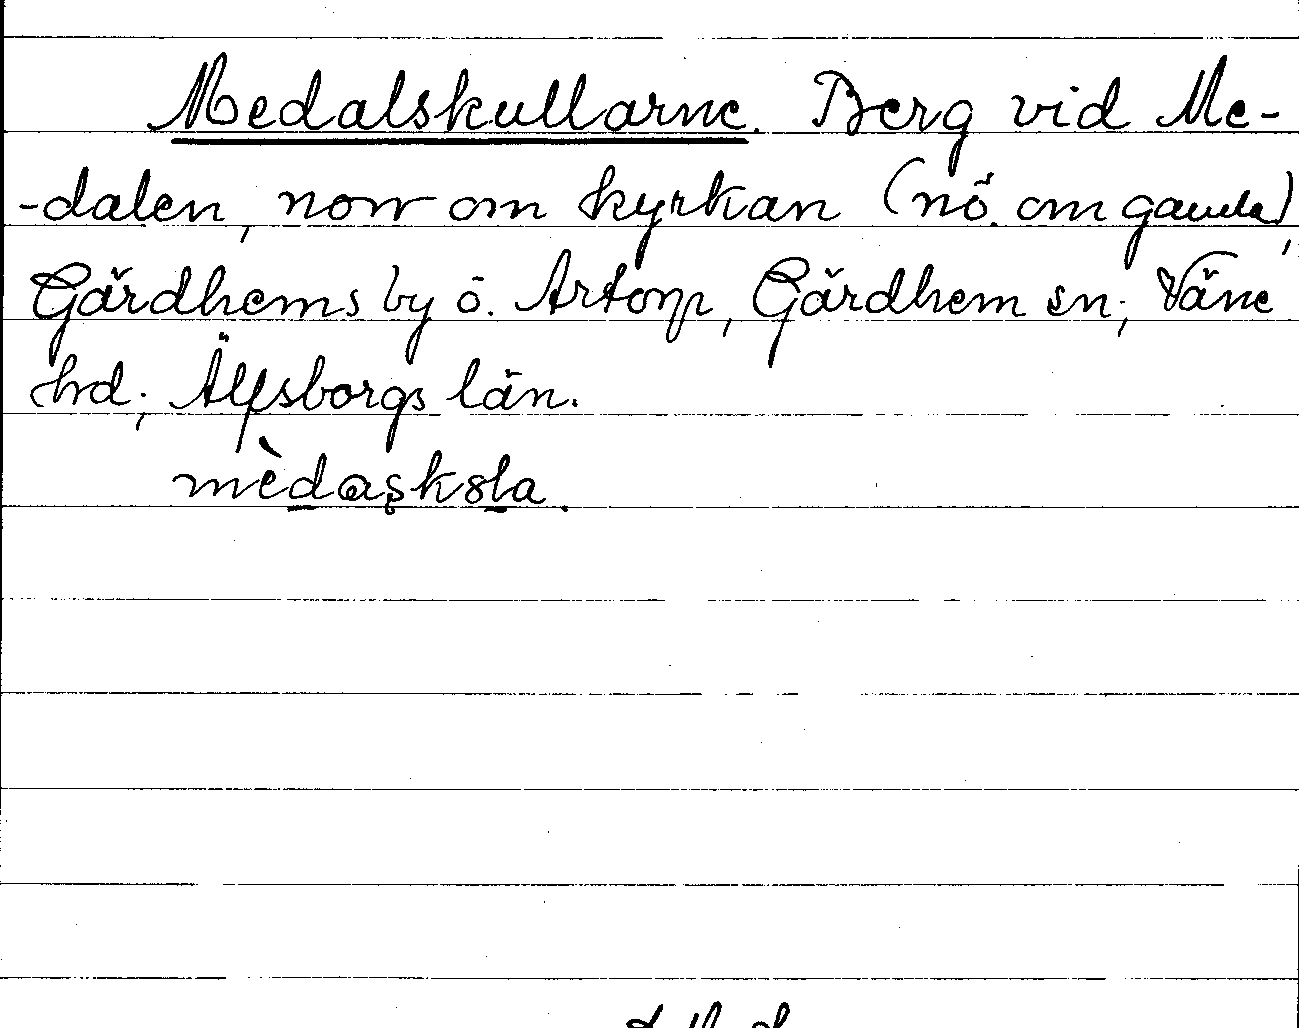 Medalskullarne. Berg vid Me-
-dalen, norr om kyrkan (nö. om gamla)
Gärdhems by ö. Artorp, Gärdhem sn; Väne
hrd; Älfsborgs län.